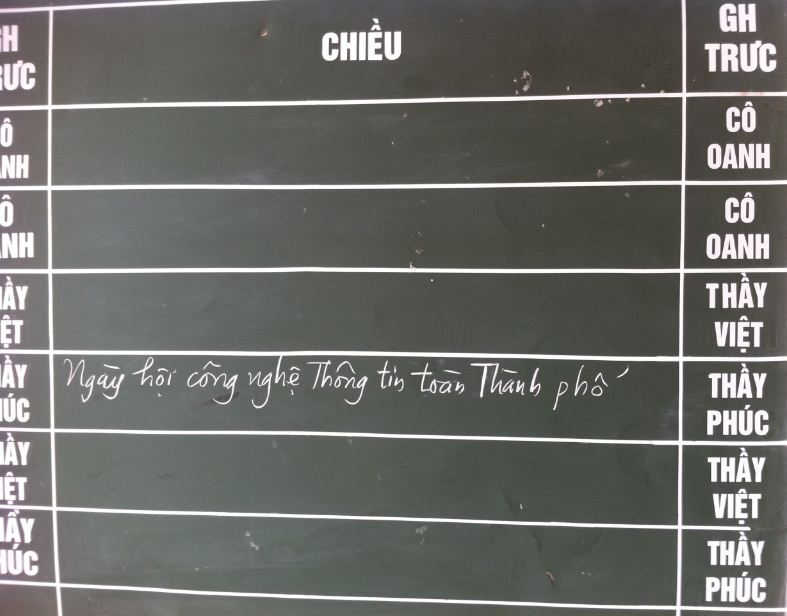 GH
TRƯC
CHIỀU
GH
TRƯC
CÔ
OANH
CÔ
OANH
CÔ
OANH
CÔ
OANH
THẦY
VIỆT
THẦY
VIỆT
THẦY
PHÚC
Ngày hội công nghệ Thông tin toàn Thành phố
THẦY
PHÚC
THẦY
VIỆT
THẦY
VIỆT
THẦY
PHÚC
THẦY
PHÚC